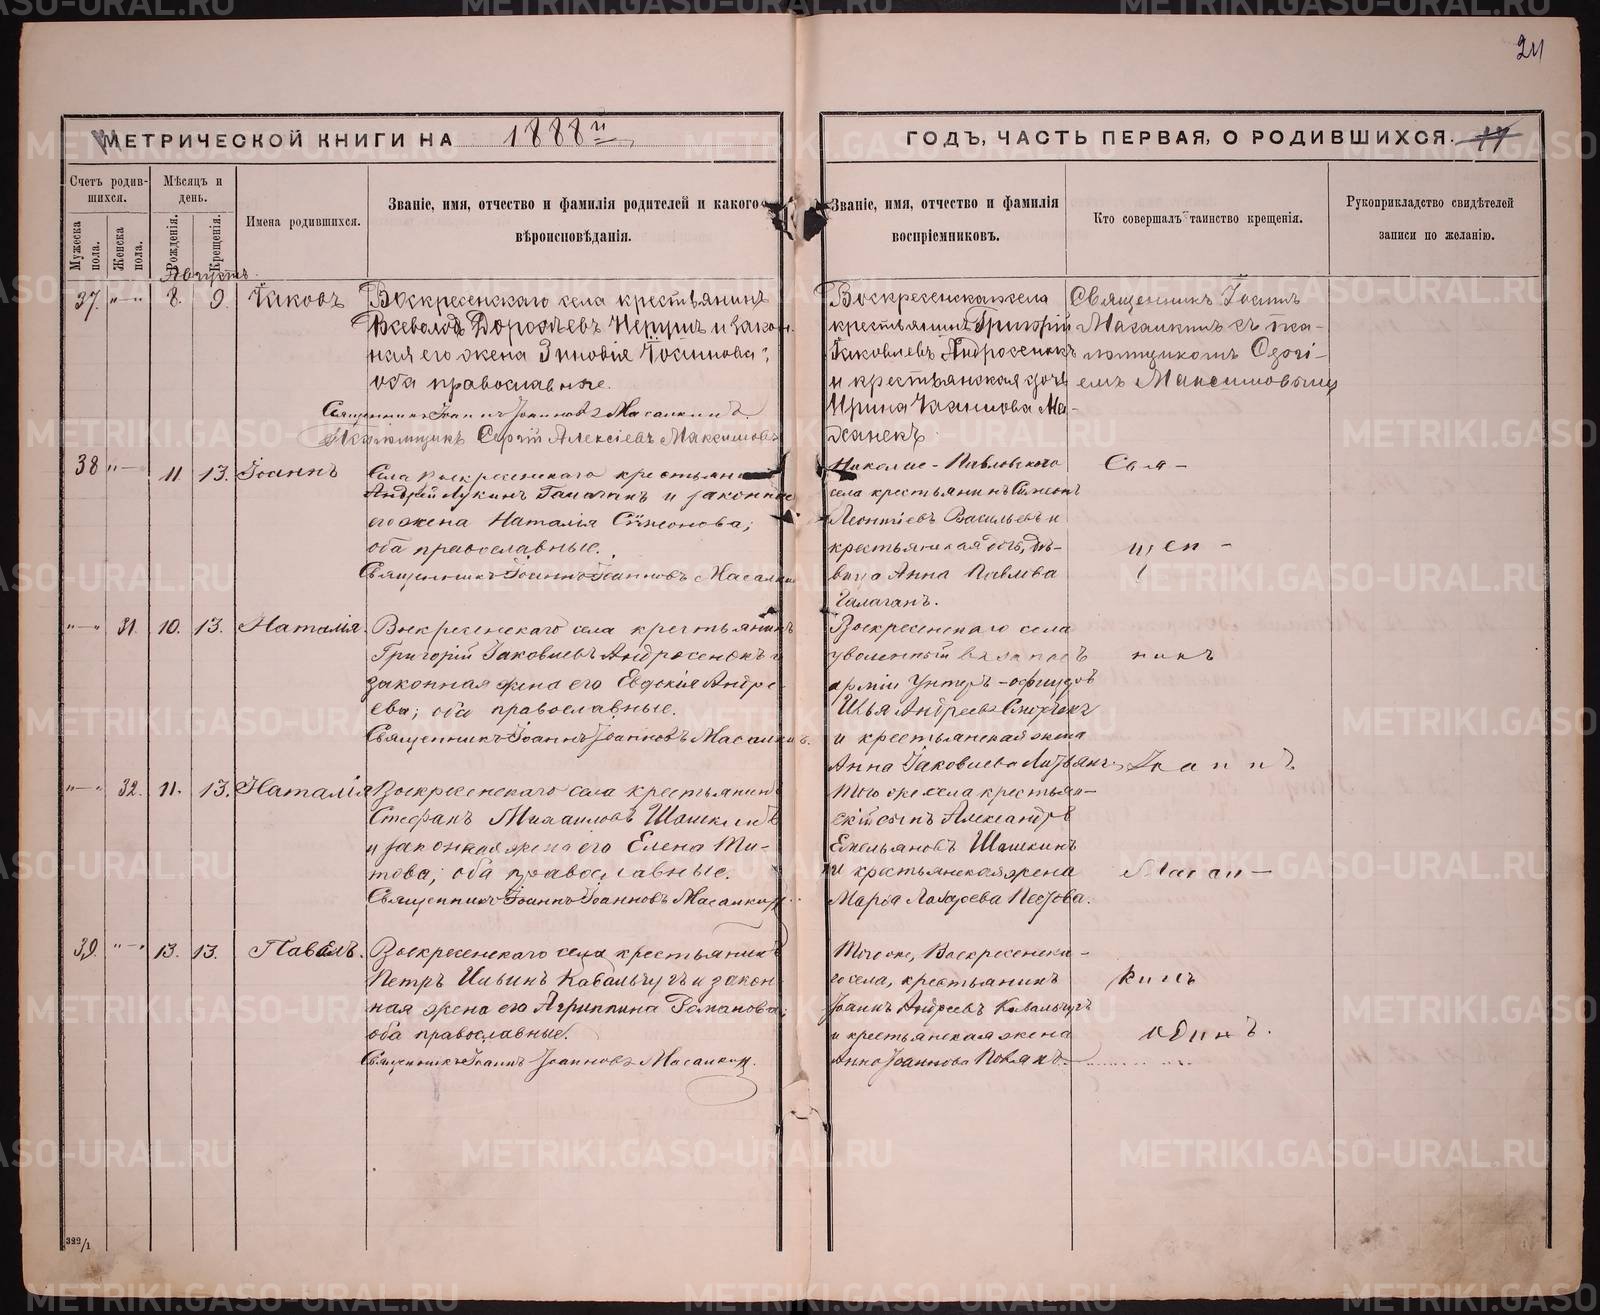 24
МЕТРИЧЕСКОЙ КНИГИ НА 1888й
ГОДЪ, ЧАСТЬ ПЕРВАЯ, О РОДИВШИХСЯ.
Счетъ родив-
шихся.
Мѣсяцъ и
день.
Мужеска
пола.
Женска
пола.
Рожденія.
Крещенія.
Имена родившихся.
Званіе, имя, отчество и фамилія родителей и какого
вѣроисповѣданія.
Званіе, имя, отчество и фамилія
воспріемниковъ.
Кто совершалъ таинство крещенія.
Рукоприкладство свидѣтелей
записи по желанію.
Августъ
37. "—" 8. 9. Іаковъ
Воскресенскаго села крестьянинъ
Всеволодъ Дорофѣевъ и закон-
ная его жена Зиновія
оба православные.
Священникъ Іоаннъ Іоанновъ Масалкинъ.
Псаломщикъ Сергій Алексіевъ Максимовъ
Воскресенскаго села
крестьянинъ Григорій
Іаковлевъ Андросенокъ
и крестьянская дочь
Ирина
Священникъ Іоаннъ
Масалкинъ съ пса-
ломщикомъ Сергі-
емъ Максимовымъ
38 "—" 11 13. Іоаннъ
Села Воскресенскаго крестьянинъ
Андрей Лукинъ Галаганъ и законная
его жена Наталія Сѵмеонова;
оба православные.
Священникъ Іоаннъ Іоанновъ Масалкинъ
Николае-Павловскаго
села крестьянинъ Сѵмеонъ
Леонтіевъ Васильевъ и
крестьянская дочь, дѣ-
вица Анна Павлова
Галаганъ.
Свя-
щен-
"—" 31. 10. 13. Наталія.
Воскресенскаго села крестьянинъ
Григорій Іаковлевъ Андросенокъ и
законная жена его Евдокія Андре-
ева; оба православные.
Священникъ Іоаннъ Іоанновъ Масалкинъ.
Воскресенскаго села
уволенный въ запасъ
арміи Унтеръ-офицеръ
Илья Андреевъ
и крестьянская жена
Анна Іаковлева
никъ
Іоаннъ
"—" 32. 11. 13. Наталія
Воскресенскаго села крестьянинъ
Стефанъ Михаиловъ Шашкинъ
и законная жена его Елена Ти-
това; оба православные.
Священникъ Іоаннъ Іоанновъ Масалкинъ.
Того же села крестьян-
скій сынъ Александръ
Емельяновъ Шашкинъ
и крестьянская жена
Марѳа Лазарева
Масал-
39. "—" 13. 13. Павелъ.
Воскресенскаго села крестьянинъ
Петръ Ильинъ Кавальчугъ и закон-
ная жена его Агриппина Романова;
оба православные.
Священникъ Іоаннъ Іоанновъ Масалкин.
Того же, Воскресенска-
го села, крестьянинъ
Іоаннъ Андреевъ Кавальчугъ
и крестьянская жена
Анна Іоаннова
кинъ
одинъ.
322/1
METRIKI.GASO-URAL.RU